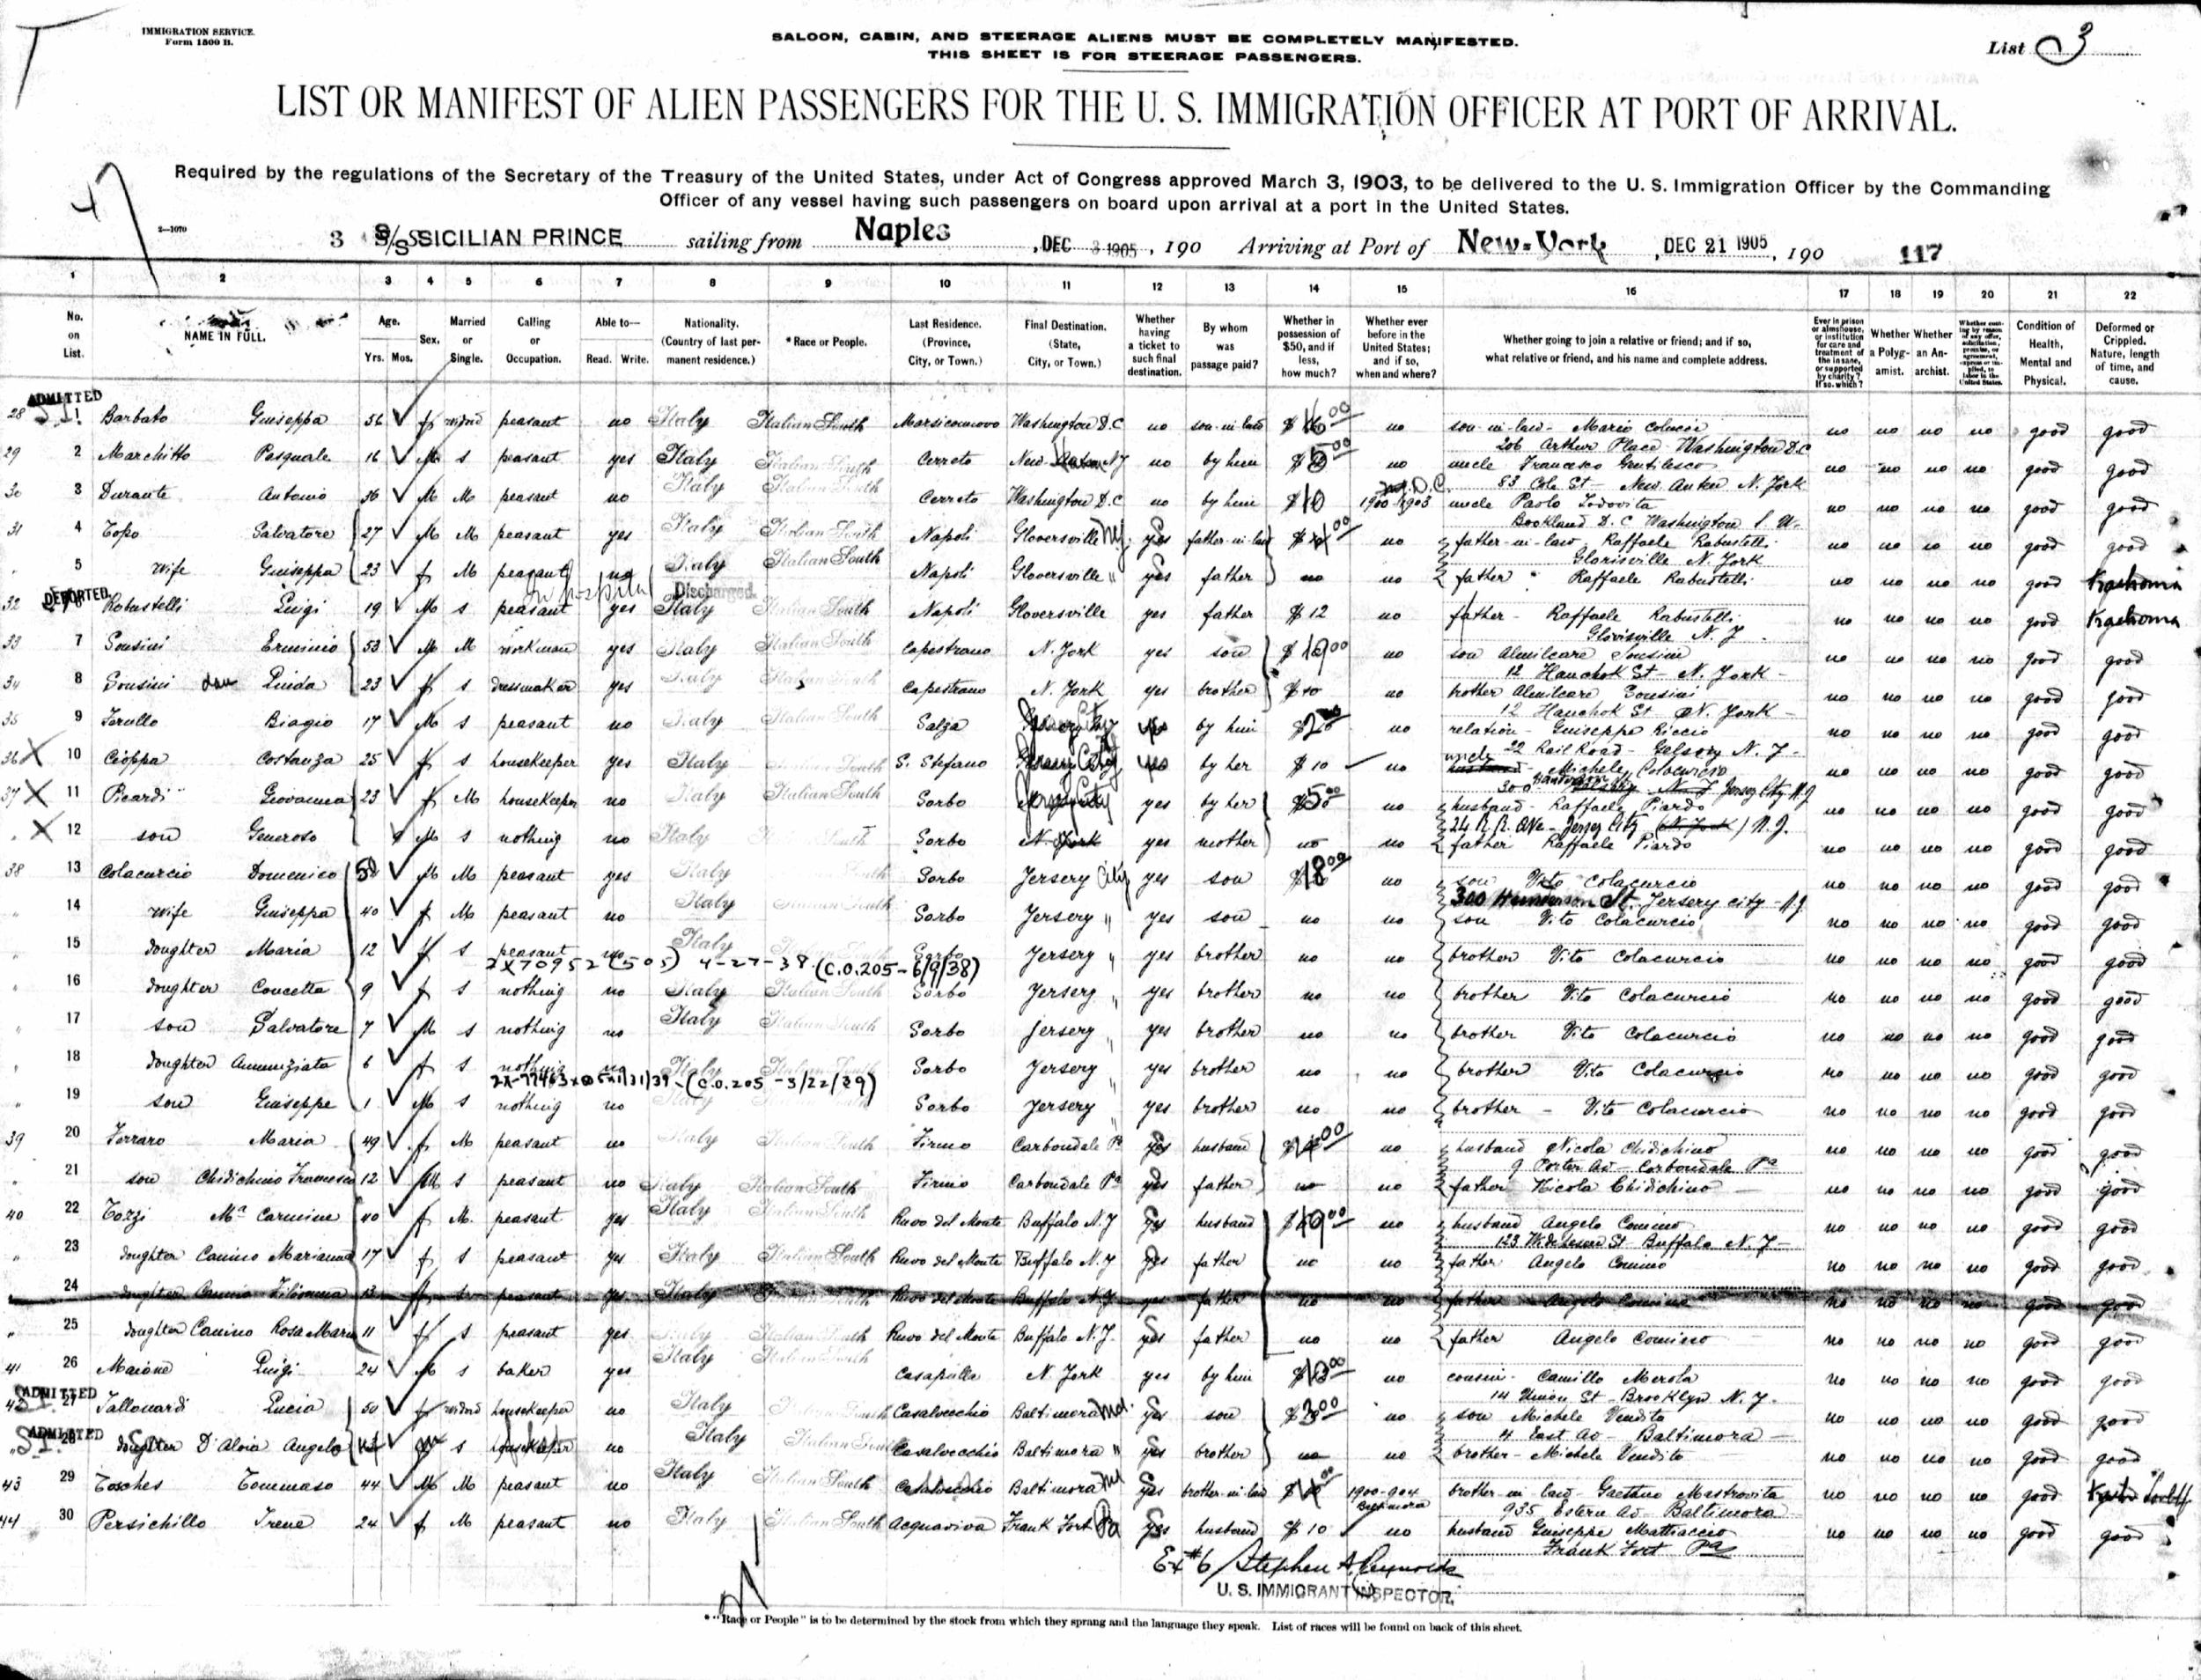 IMMIGRATION SERVICE.
Form 1500 B.
SALOON, CABIN, AND STEERAGE ALIENS MUST BE COMPLETELY MANIFESTED.
THIS SHEET IS FOR STEERAGE PASSENGERS.
List 3
LIST OR MANIFEST OF ALIEN PASSENGERS FOR THE U. S. IMMIGRATION OFFICER AT PORT OF ARRIVAL.
Required by the regulations of the Secretary of the Treasury of the United States, under Act of Congress approved March 3, 1903, to be delivered to the U. S. Immigration Officer by the Commanding
Officer of any vessel having such passengers on board upon arrival at a port in the United States.
2—1070
3 S/S SICILIAN PRINCE sailing from Naples, DEC 3 1905, 190 Arriving at Port of New-York, DEC 21 1905, 190 117
1 2 3 4 5 6 7 8 9 10 11 12 13 14 15 16 17 18 19 20 21 22
No. on List. NAME IN FULL. Age. Yrs. Mos. Sex. Married or Single. Calling or Occupation. Able to— Read. Write. Nationality. (Country of last permanent residence.) *Race or People. Last Residence. (Province, City, or Town.) Final Destination. (State, City, or Town.) Whether having a ticket to such final destination. By whom was passage paid? Whether in possession of $50, and if less, how much? Whether ever before in the United States; and if so, when and where? Whether going to join a relative or friend; and if so, what relative or friend, and his name and complete address. Ever in prison or almshouse, or institution for care and treatment of the insane, or supported by charity? If so, which? Whether a Polygamist. Whether an Anarchist. Condition of Health, Mental and Physical. Deformed or Crippled. Nature, length of time, and cause.
ADMITTED
28 1 Barbato Guiseppa 56 f widow peasant no Italy Italian South Marsiconovo Washington D.C no son-in-law no son-in-law - Mario Colucci no no no no good good
206 Arthur Place Washington D.C
29 2 Marchitto Pasquale 16 M s peasant yes Italy Italian South Cerreto New no by him no uncle Francesco Gentilesco no no no no good good
83 Cole St - New N. York
30 3 Durante Antonio 36 M M peasant no Italy Italian South Cerreto Washington D.C no by him $10 1900-1903 uncle Paolo no no no no good good
D.C Washington
31 4 Topo Salvatore 27 M M peasant yes Italy Italian South Napoli Gloversville NY yes father-in-law no father-in-law Raffaele Rabustelli no no no no good good
N. York
5 wife Guiseppa 23 f M peasant no Italy Italian South Napoli Gloversville " yes father no no father Raffaele Rabustelli no no no no good Trachoma
DEPORTED in hospital Discharged
32 6 Robustelli Luigi 19 M s peasant yes Italy Italian South Napoli Gloversville yes father $12 no father - Raffaele Rabustelli no no no no good Trachoma
33 7 Sonsini Erminio 53 M M workman yes Italy Italian South Capestrano N. York yes son no son Almilcare Sonsini no no no no good good
12 Hanchok St - N. York -
34 8 Sonsini Linda 23 f s dressmaker yes Italy Italian South Capestrano N. York yes brother $10 no brother Almilcare Sonsini no no no no good good
12 Hanchok St N. York -
35 9 Biagio 17 M s peasant no Italy Italian South Salza Jersey City by him no relation - Guiseppe Riccio no no no no good good
22 Rail Road -
36 X 10 Cioppa Costanza 25 f s housekeeper yes Italy Italian South S. Stefano Jersey City by her $10 no uncle Michele Colacurcio no no no no good good
300 Jersey City N.J
37 X 11 Picardi Giovanna 23 f M housekeeper no Italy Italian South Sorbo Jersey City yes by her no husband - Raffaele Piardo no no no no good good
24 R.R. Ave - Jersey City N.J.
X 12 son Generoso M s nothing no Italy Sorbo N. York yes mother no no father Raffaele Piardo no no no no good good
38 13 Colacurcio Domenico M M peasant yes Italy Sorbo Jersery City yes son no son Vito Colacurcio no no no no good good
300 Henderson St. Jersery city - N.J.
14 wife Guiseppa 40 f M peasant no Italy Sorbo Jersery " yes son no no son Vito Colacurcio no no no no good good
15 doughter Maria 12 f s peasant no Italy Sorbo Jersery " yes brother no no brother Vito Colacurcio no no no no good good
2X70952 (505) 4-27-38 (C.O.205-6/9/38)
16 doughter Concetta 9 f s nothing no Italy Italian South Sorbo Jersery " yes brother no no brother Vito Colacurcio no no no no good good
17 son Salvatore 7 M s nothing no Italy Italian South Sorbo Jersery " yes brother no no brother Vito Colacurcio no no no no good good
18 doughter Annunziata 6 f s nothing no Italy Italian South Sorbo Jersery " yes brother no no brother Vito Colacurcio no no no no good good
(C.O.205 -3/22/39)
19 son Guiseppe 1 M s nothing no Italy Sorbo Jersery " yes brother no no brother - Vito Colacurcio no no no no good good
39 20 Ferraro Maria 49 f M peasant no Italy Italian South Firmo Carbondale Pa yes husband no husband Nicola Chidichino no no no no good good
9 Porter Av - Carbondale Pa
21 son Chidichino Francesco 12 M s peasant no Italy Italian South Firmo Carbondale Pa yes father no no father Nicola Chidichino no no no no good good
40 22 Tozzi Ma Carmine 40 f M. peasant yes Italy Italian South Ruvo del Monte Buffalo N.Y yes husband no husband Angelo Comino no no no no good good
123 St Buffalo N. Y -
23 doughter Canino Marianna 17 f s peasant yes Italy Italian South Ruvo del Monte Buffalo N.Y yes father no no father Angelo Comino no no no no good good
24 doughter Canino Filomena 13 peasant yes Italy Italian South Ruvo del Monte Buffalo N.Y yes father no no father Angelo Comino no no no no good good
25 doughter Canino Rosa Maria 11 f s peasant yes Italy Italian South Ruvo del Monte Buffalo N.Y. yes father no no father Angelo Comino no no no no good good
41 26 Maione Luigi 24 M s baker yes Italy Italian South Casapulla N. York yes by him no cousin - Camillo Merola no no no no good good
14 Union St - Brooklyn N. Y.
ADMITTED
42 27 Tallouardi Lucia 50 f widow housekeeper no Italy Italian South Casalvecchio Baltimora Md. yes son no son Michele Vendito no no no no good good
11 East Av - Baltimora -
ADMITTED
S.I. 28 D'Aloia Angelo s housekeeper no Italy Italian South Casalvecchio Baltimora " yes brother no no brother - Michele Vendito no no no no good good
43 29 Tosches Tommaso 44 M M peasant no Italy Italian South Casalvecchio Baltimora Md yes brother-in-law 1900-904 brother in law Gaetano Mastrovita no no no no good
935 Estern Av - Baltimora
44 30 Persichillo Irene 24 f M peasant no Italy Italian South Acquaviva Frank Fort Pa yes husband $10 no husband Guiseppe Mattiaccio no no no no good good
Frank Fort Pa
Ex #6 Stephen A. Reynolds
U. S. IMMIGRANT INSPECTOR.
*"Race or People" is to be determined by the stock from which they sprang and the language they speak. List of races will be found on back of this sheet.